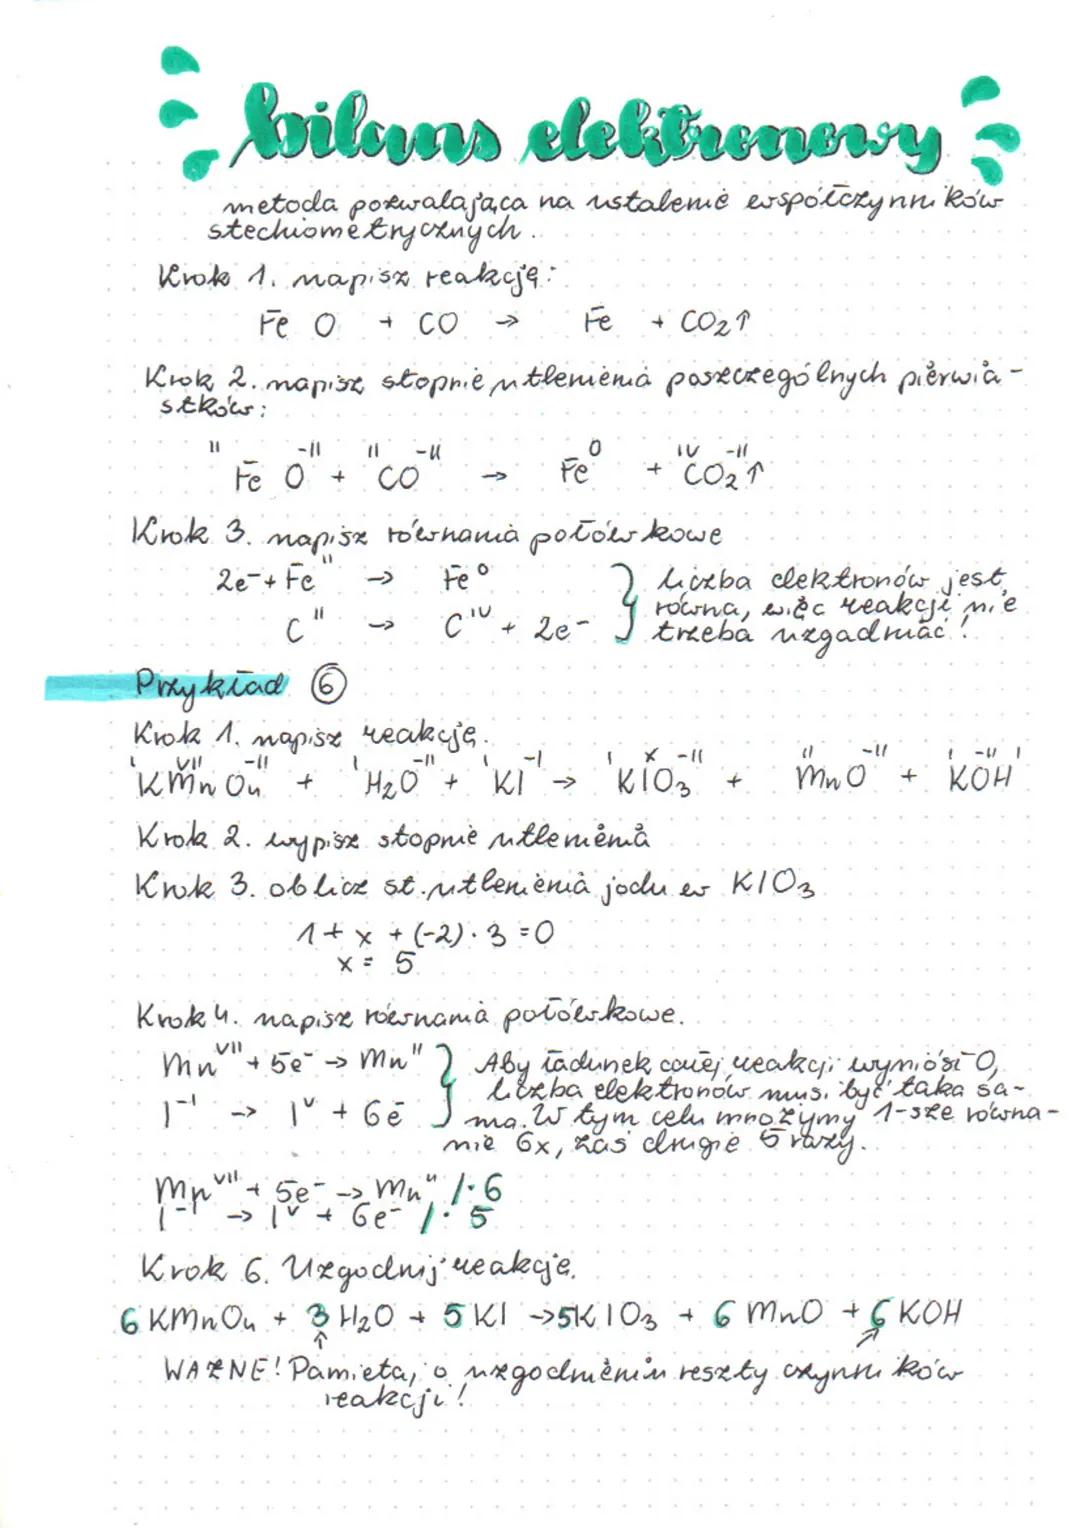 bilans elektronowy
metoda pozwalająca na ustalenie współczynników
stechiometrycznych.
Krok 1. napisz reakcję:
Fe O + CO → Fe + CO₂↑
Krok 2. napisz stopnie utlenienia poszczególnych pierwia-
stków:
ᴵᴵFe O⁻ᴵᴵ + ᴵᴵCO⁻ᴵᴵ → Fe⁰ + ᴵⱽCO₂⁻ᴵᴵ↑
Krok 3. napisz równania połówkowe
2e⁻ + Feᴵᴵ → Fe⁰
Cᴵᴵ → Cᴵⱽ + 2e⁻
liczba elektronów jest
równa, więc reakcji nie
trzeba uzgadniać!
Przykład ⑥
Krok 1. napisz reakcję.
ᴵKMnⱽᴵᴵO₄⁻ᴵᴵ + ᴵH₂O⁻ᴵᴵ + ᴵKI⁻ᴵ → ᴵKIˣO₃⁻ᴵᴵ + ᴵᴵMnO⁻ᴵᴵ + ᴵKO⁻ᴵᴵHᴵ
Krok 2. wypisz stopnie utlenienia
Krok 3. oblicz st. utlenienia jodu w KIO₃
1 + x + (-2) · 3 = 0
x = 5
Krok 4. napisz równania połówkowe.
Mnⱽᴵᴵ + 5e⁻ → Mnᴵᴵ
I⁻ᴵ → Iⱽ + 6e⁻
Aby ładunek całej reakcji wyniósł 0,
liczba elektronów musi być taka sa-
ma. W tym celu mnożymy 1-sze równa-
nie 6x, zaś drugie 5 razy.
Mnⱽᴵᴵ + 5e⁻ → Mnᴵᴵ /· 6
I⁻ᴵ → Iⱽ + 6e⁻ /· 5
Krok 6. Uzgodnij reakcję.
6 KMnO₄ + 3 H₂O + 5 KI → 5KIO₃ + 6 MnO + 6 KOH
WAŻNE! Pamiętaj o uzgodnieniu reszty czynników
reakcji!